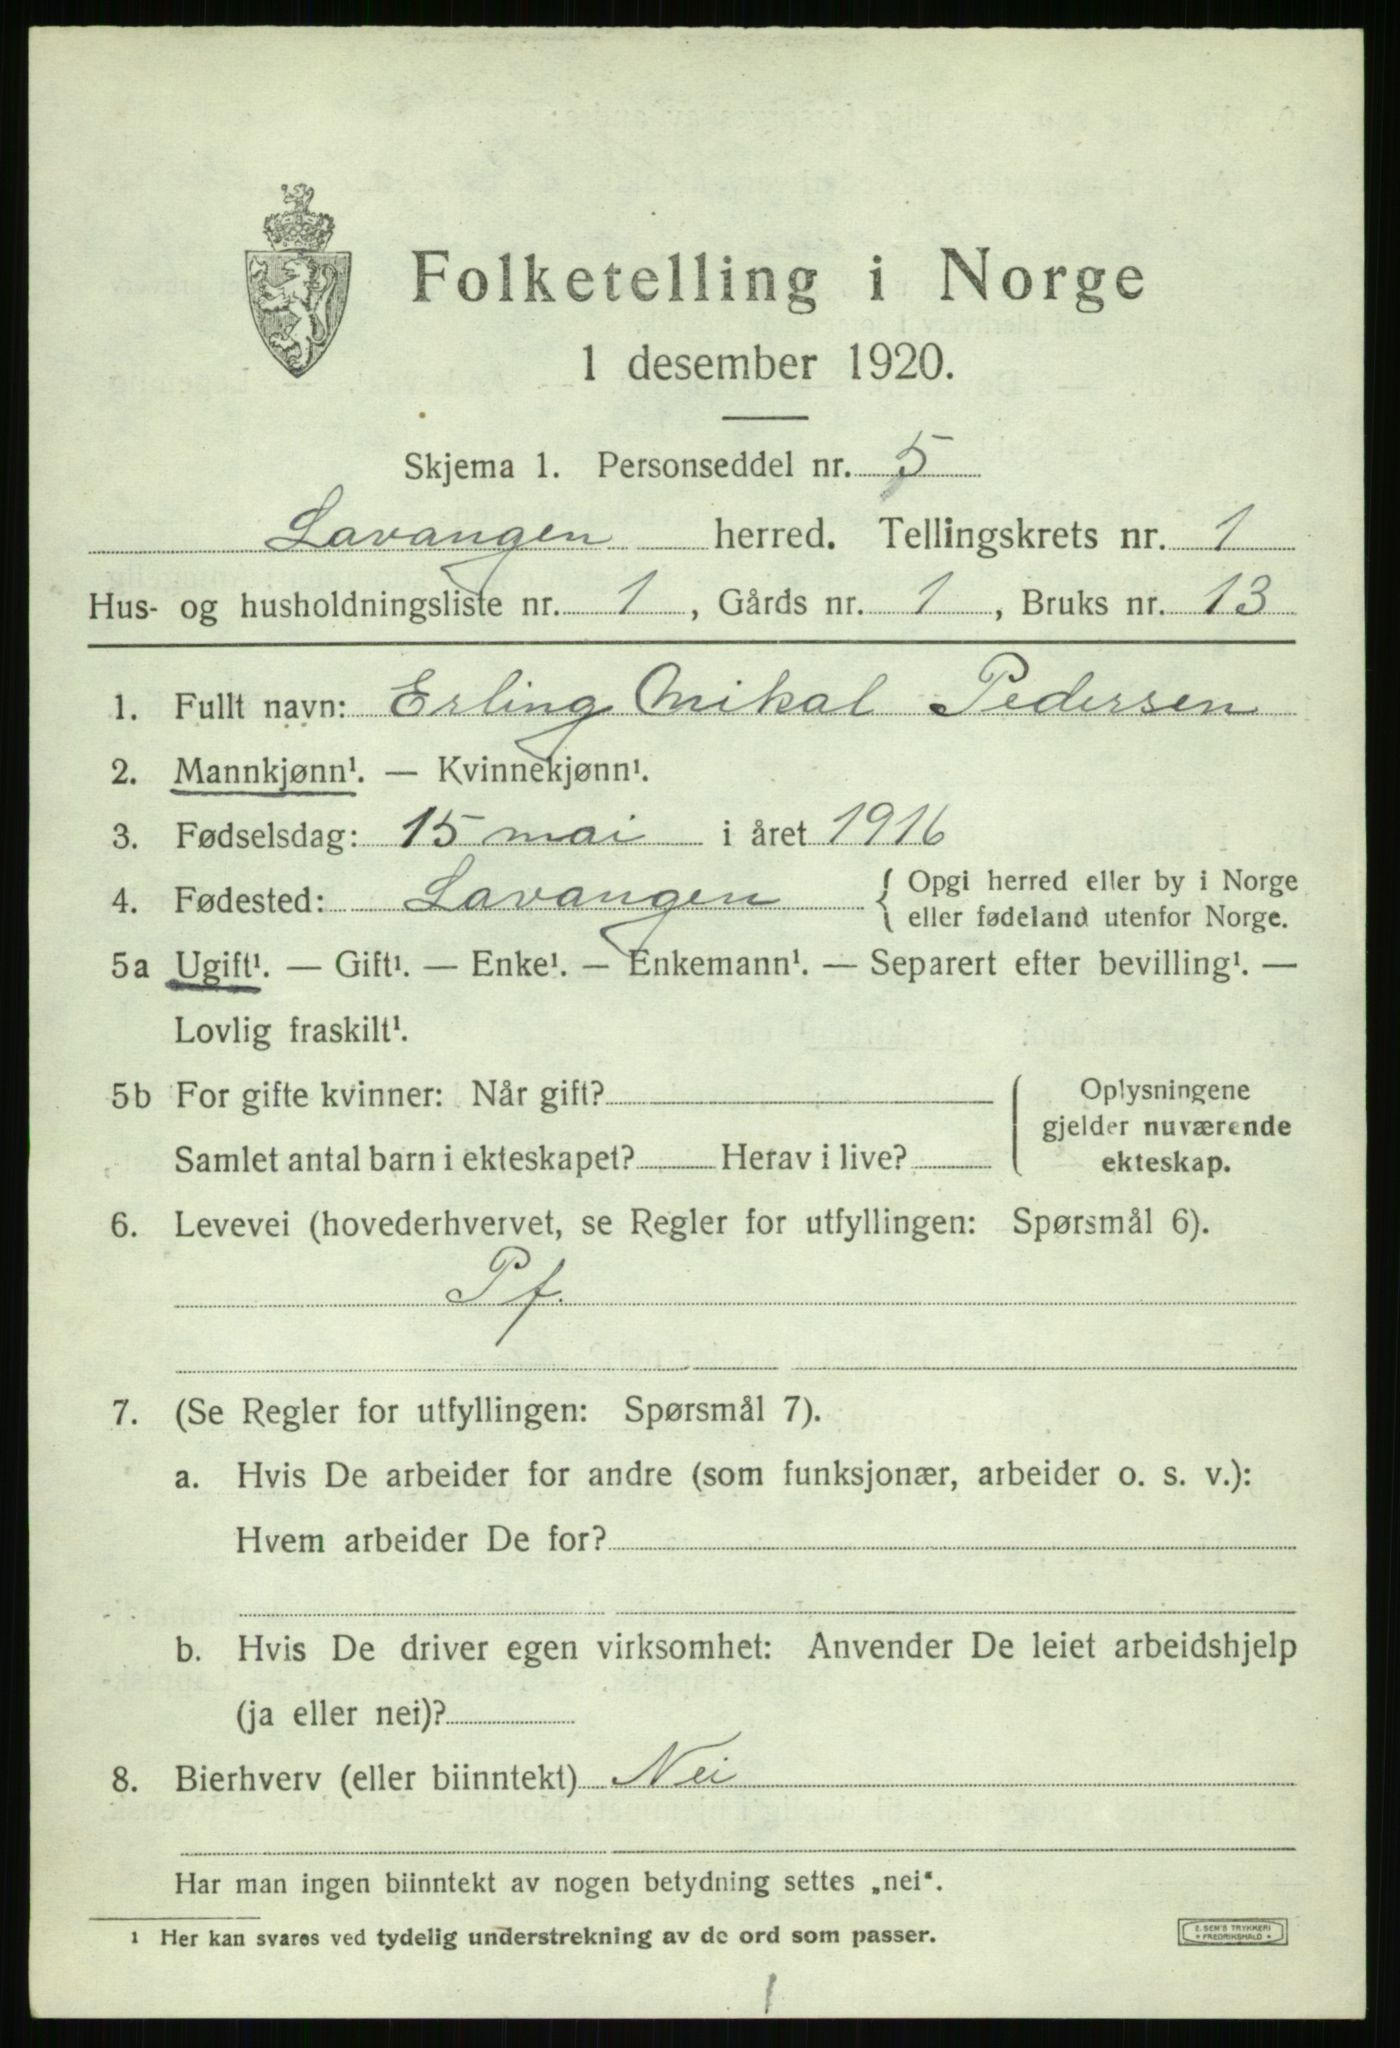 Folketelling i Norge
1 desember 1920.
Skjema 1. Personseddel nr. 5
Lavangen herred. Tellingskrets nr. 1
Hus- og husholdningsliste nr. 1, Gårds nr. 1, Bruks nr. 13
1. Fullt navn: Erling Mikal Pedersen
2. Mannkjønn¹. — Kvinnekjønn¹.
3. Fødselsdag: 15 mai i året 1916
4. Fødested: Lavangen { Opgi herred eller by i Norge
eller fødeland utenfor Norge.
5a Ugift¹. — Gift¹. — Enke¹. — Enkemann¹. — Separert efter bevilling¹. —
Lovlig fraskilt¹.
5b For gifte kvinner: Når gift?
Samlet antal barn i ekteskapet? Herav i live?
Oplysningene
gjelder nuværende
ekteskap.
6. Levevei (hovederhvervet, se Regler for utfyllingen: Spørsmål 6).
Pf.
7. (Se Regler for utfyllingen: Spørsmål 7).
a. Hvis De arbeider for andre (som funksjonær, arbeider o. s. v.):
Hvem arbeider De for?
b. Hvis De driver egen virksomhet: Anvender De leiet arbeidshjelp
(ja eller nei)?
8. Bierhverv (eller biinntekt) Nei
Har man ingen biinntekt av nogen betydning settes „nei“.
¹ Her kan svares ved tydelig understrekning av de ord som passer.
E. SEM'S TRYKKERI
• FREDRIKSHALD •
1